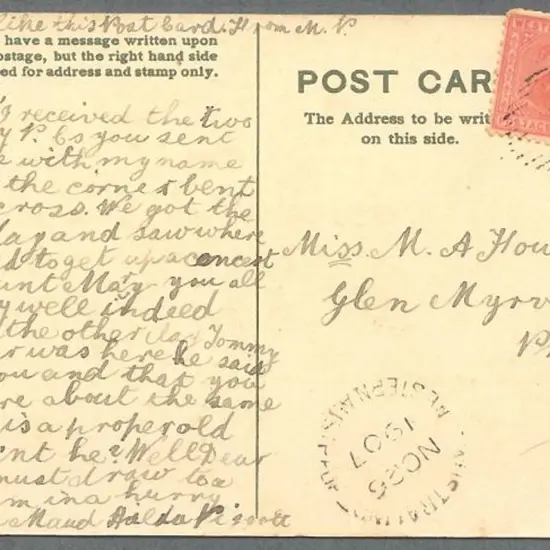 like this Post Card. From M. P.
have a message written upon
ostage, but the right hand side
ed for address and stamp only.
I received the two
P. Cs you sent
with my name
the corner bent
cross. We got the
and saw where
d to get up a concert
unt Mary you all
y well indeed
the other day Tommy
r was here he said
you and that you
re about the same
is a proper old
ent he? Well Dear
must draw to a
am in a hurry
Maud Hilda Pigott
POST CAR
The Address to be writ
on this side.
Miss. M. A Hou
Glen Myrv
WEST
POSTAGE
WESTERN AUSTRALIA
1907